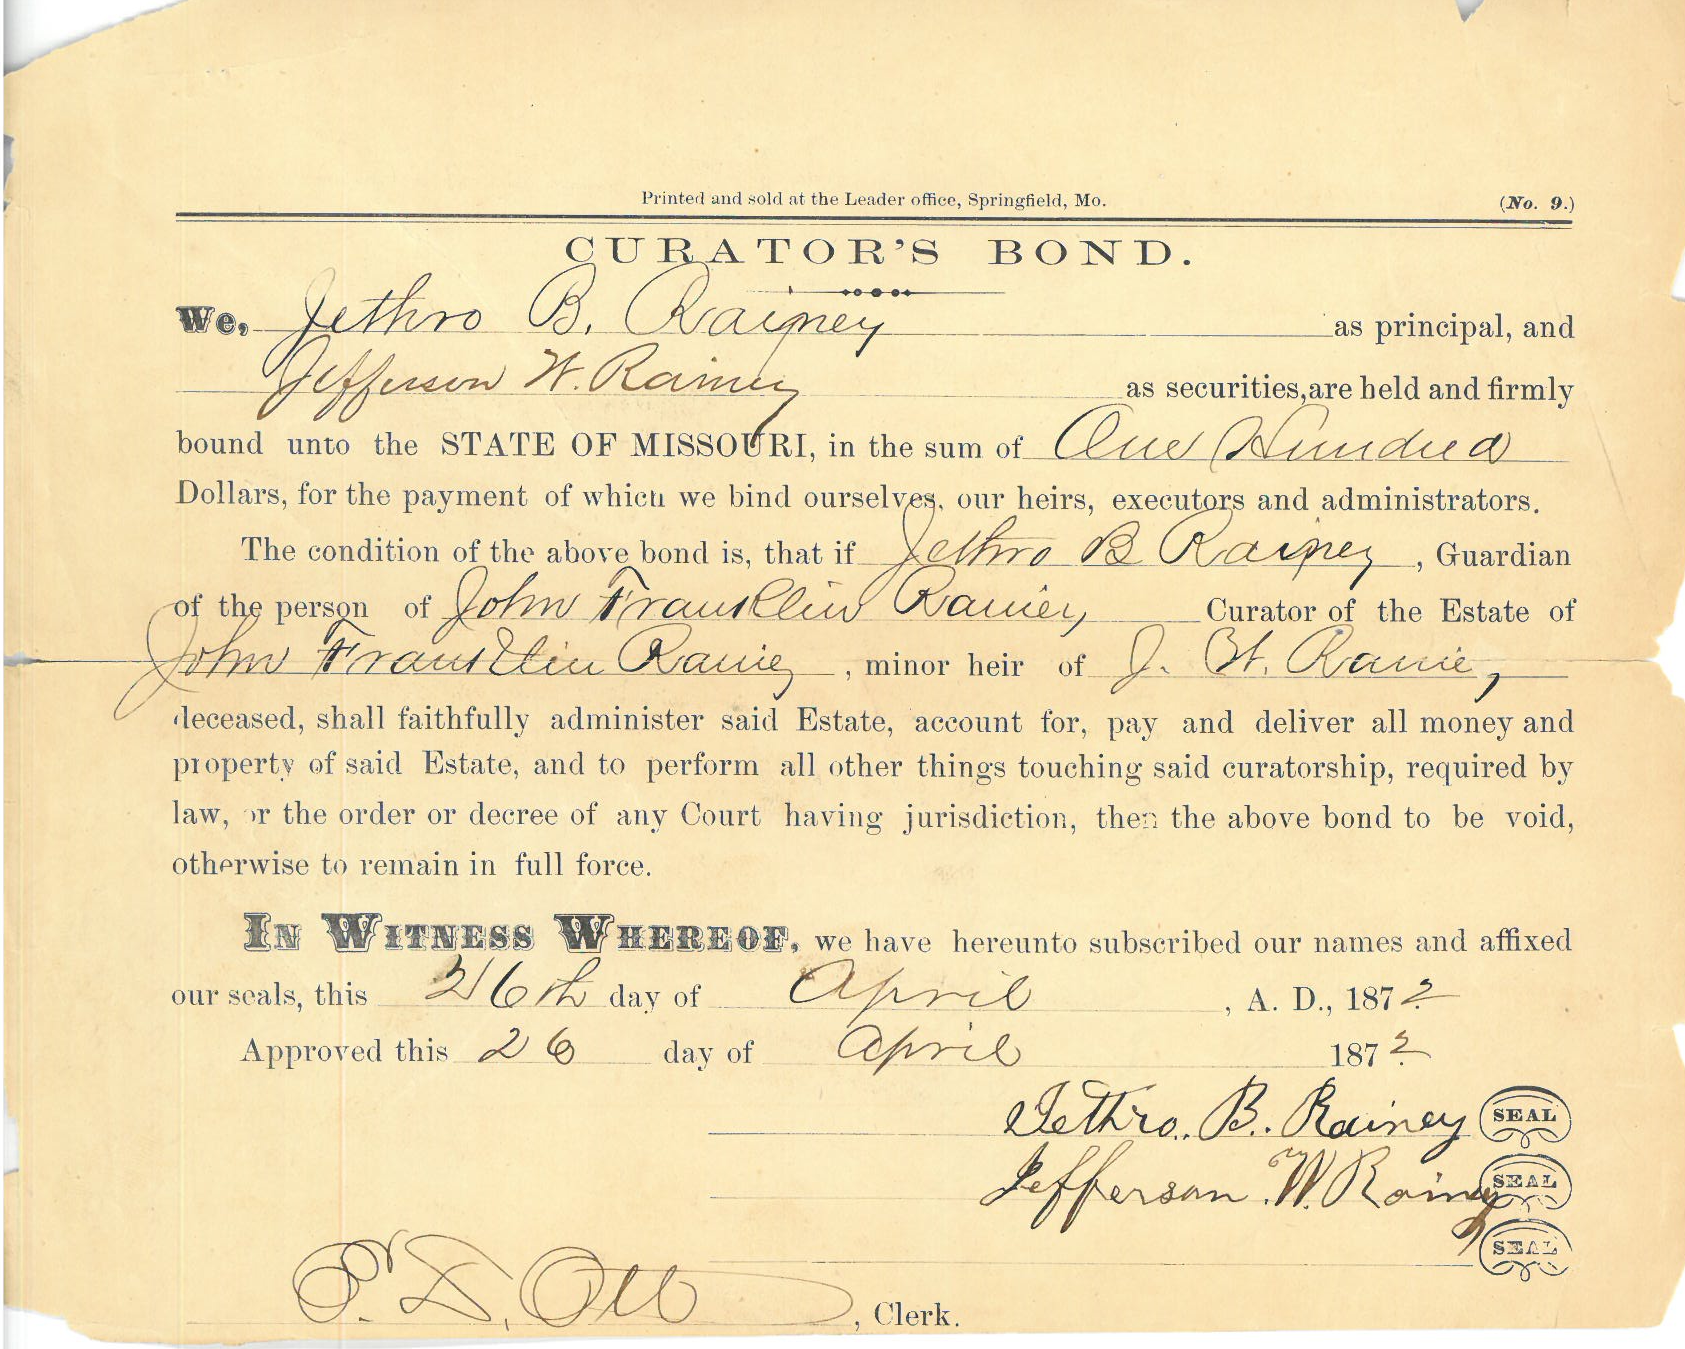 Printed and sold at the Leader office, Springfield, Mo. (No. 9.)
CURATOR'S BOND.
We, Jethro B. Rainey as principal, and
Jefferson W. Rainey as securities, are held and firmly
bound unto the STATE OF MISSOURI, in the sum of One Hundred
Dollars, for the payment of which we bind ourselves, our heirs, executors and administrators.
The condition of the above bond is, that if Jethro B Rainey, Guardian
of the person of John Franklin Rainey Curator of the Estate of
John Franklin Rainey, minor heir of J. H. Rainey
deceased, shall faithfully administer said Estate, account for, pay and deliver all money and
property of said Estate, and to perform all other things touching said curatorship, required by
law, or the order or decree of any Court having jurisdiction, then the above bond to be void,
otherwise to remain in full force.
IN WITNESS WHEREOF, we have hereunto subscribed our names and affixed
our seals, this 26th day of April, A. D., 1872
Approved this 26 day of April 1872
Jethro. B. Rainey SEAL
Jefferson. W. Rainey SEAL
SEAL
Ott, Clerk.